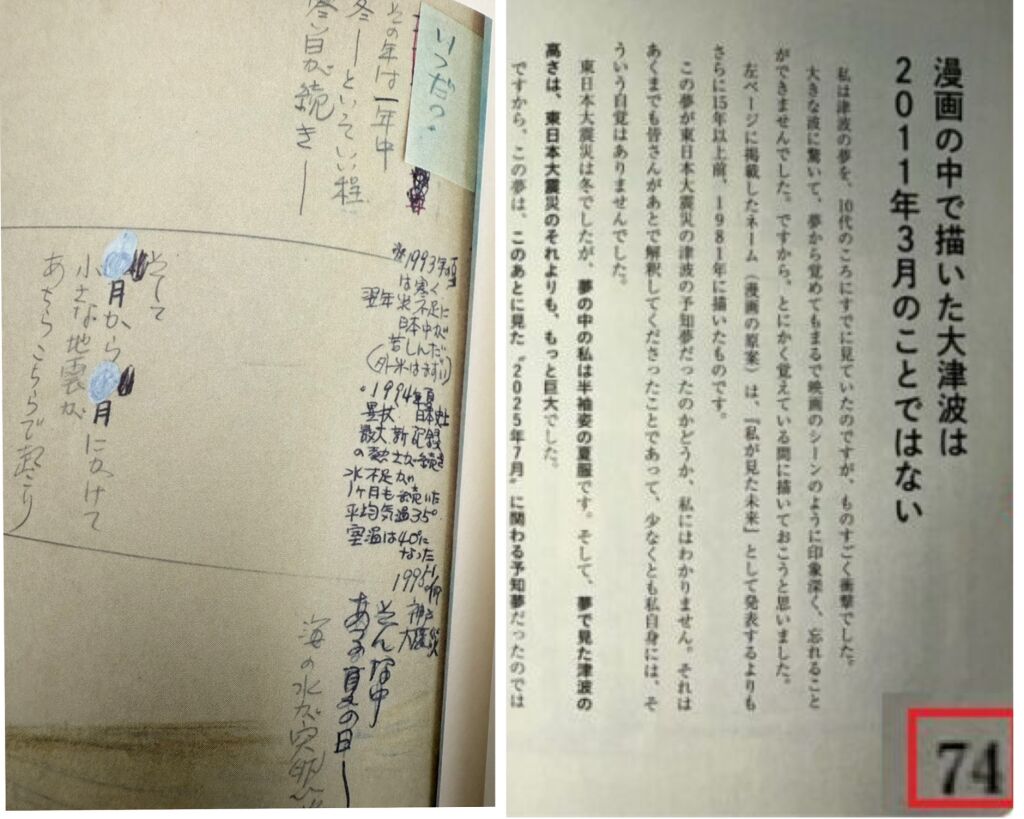 いつだ?
その年は一年中
冬―といっていい程
が続き―
※1993年頃
は寒く
翌年米不足に
日本中が
苦しんだ
(外米はまずい)
。1994年夏
異状 日本史上
最大新記録
の熱さが続き
水不足が
1ヶ月も続いた
平均気温35°
室温は40°に
なった
1995
神戸
大震災
そして
月から 月にかけて
小さな地震が
あちらこちらで起こり
そんな中
ある夏の日―
海の水が突然
漫画の中で描いた大津波は
2011年3月のことではない
私は津波の夢を、10代のころにすでに見ていたのですが、ものすごく衝撃でした。
大きな波に驚いて、夢から覚めてもまるで映画のシーンのように印象深く、忘れること
ができませんでした。ですから、とにかく覚えている間に描いておこうと思いました。
左ページに掲載したネーム(漫画の原案)は、『私が見た未来』として発表するよりも
さらに15年以上前、1981年に描いたものです。
この夢が東日本大震災の津波の予知夢だったのかどうか、私にはわかりません。それは
あくまでも皆さんがあとで解釈してくださったことであって、少なくとも私自身には、そ
ういう自覚はありませんでした。
東日本大震災は冬でしたが、夢の中の私は半袖姿の夏服です。そして、夢で見た津波の
高さは、東日本大震災のそれよりも、もっと巨大でした。
ですから、この夢は、このあとに見た“2025年7月”に関わる予知夢だったのでは
74